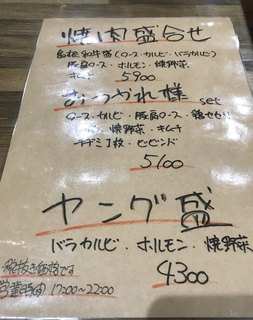 焼肉盛合せ
和牛盛(ロース・カルビ・バラカルビ)
豚肩ロース・ホルモン・焼野菜
キムチ 5900
おつかれ様 set
ロース・カルビ・豚肩ロース・鶏セセリ
焼野菜・キムチ
チヂミ1枚・ビビンバ
5100
ヤング盛
バラカルビ・ホルモン・焼野菜
4300
税抜き価格です
営業時間 17:00〜22:00